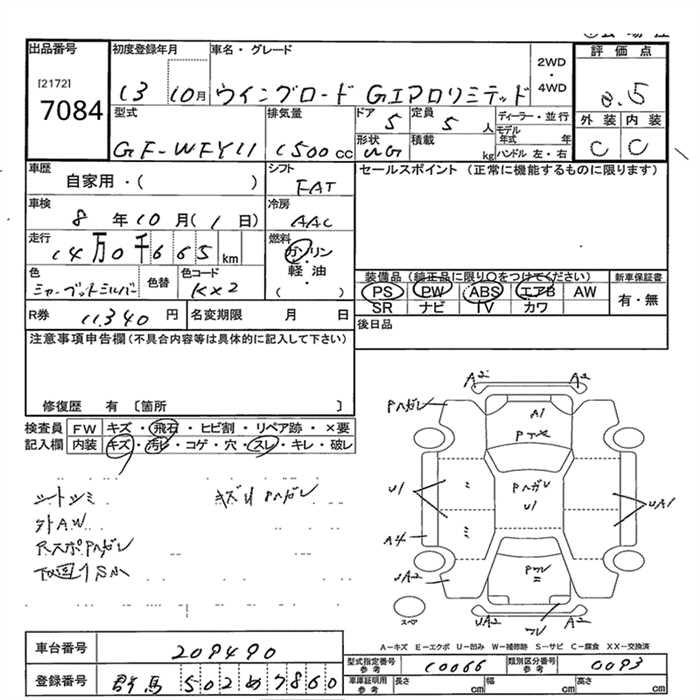 出品番号 初度登録年月 車名・グレード 2WD・4WD 評価点
[2172]
7084
13 10月 ウイングロード GエアロリミテッD 3.5
型式 排気量 ドア 定員 ディーラー・並行 外装 内装
GF-WFY11 1500cc 5 5人 モデル年式 年 C C
形状 WG 積載 kg ハンドル 左・右
車歴 シフト セールスポイント (正常に機能するものに限ります)
自家用・( ) FAT
車検 冷房
8年10月(1日) AAC
走行 燃料
14万0千665km ガソリン・軽油 ( )
色 色替 色コード 装備品 (純正品に限り○をつけてください) 新車保証書
シャープシルバー KX2 PS PW ABS エアB AW 有・無
SR ナビ TV カワ
R券 11,340円 名変期限 月 日 後日品
注意事項申告欄(不具合内容等は具体的に記入して下さい)
修復歴 有 〔箇所 〕
検査員 FW キズ・飛石・ヒビ割・リペア跡・×要
記入欄 内装 キズ・汚レ・コゲ・穴・スレ・キレ・破レ
シートシミ キズリPハガレ
社外AW
RスポPハガレ
下回りSm
A2 A2
Pハガレ A1
Pハガレ
U1 U1 UA1
A4
UA2
UA2 A2
スペア
A-キズ E-エクボ U-凹み W-補修跡 S-サビ C-腐食 XX-交換済
車台番号 209490
型式指定番号 参考 C0066 類別区分番号 参考 0093
登録番号 群馬 502 め 7860
車庫証明用 参考 長さ cm 幅 cm 高さ cm